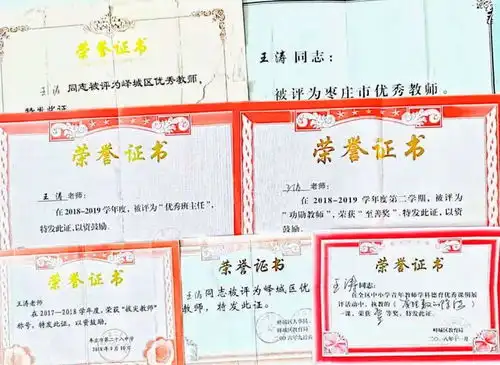 荣誉证书
王涛
同志被评为峄城区优秀教师，
特发此证
王涛同志：
被评为枣庄市优秀教师。
荣誉证书
王涛老师：
在2018-2019学年度，被评为“优秀班主任”，
特发此证，以资鼓励。
荣誉证书
王涛老师：
在2018-2019学年度第二学期，被评为
“功勋教师”，荣获“至善奖”，特发此证，以资
鼓励。
荣誉证书
王涛老师
在2017-2018学年度，荣获“拔尖教师”
称号，特发此证，以资鼓励。
枣庄市第二十八中学
荣誉证书
王涛同志被评为峄城区优
秀教师，特发此证。
峄城区人事局
峄城区教育局
荣誉证书
王涛同志：
在全区中小学青年教师学科德育优秀课例展
评活动中，执教的《
》
一课，荣获
等奖，特发此证。
峄城区教育局
二〇一八年十一月